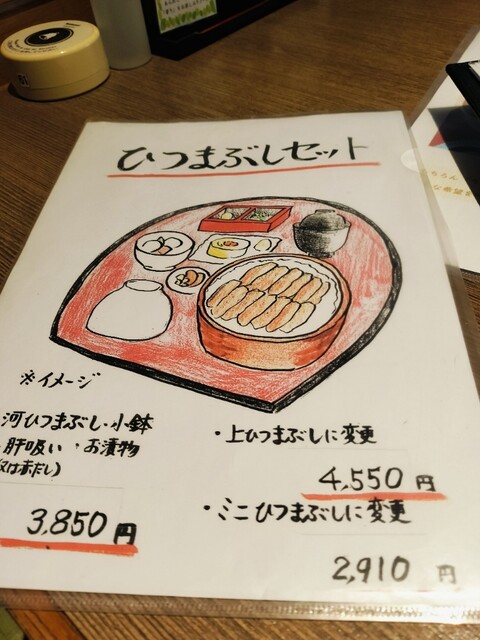 ひつまぶしセット
※イメージ
河ひつまぶし・小鉢
肝吸い・お漬物
又は赤だし)
3,850円
・上ひつまぶしに変更
4,550円
・ミニひつまぶしに変更
2,910円